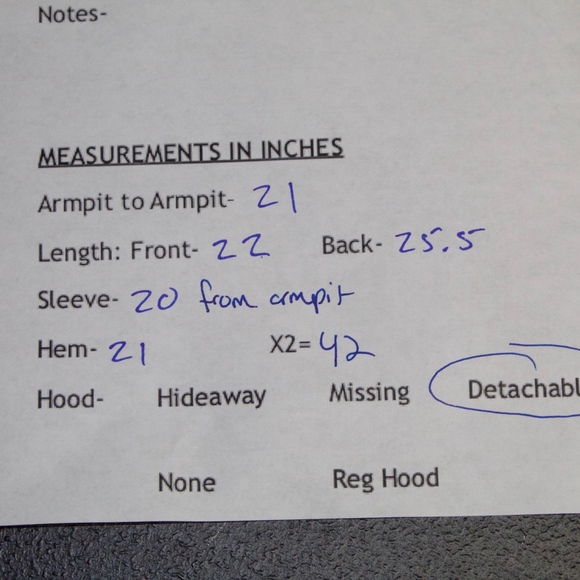 Notes-
MEASUREMENTS IN INCHES
Armpit to Armpit- 21
Length: Front- 22 Back- 25.5
Sleeve- 20 from armpit
Hem- 21 X2= 42
Hood- Hideaway Missing Detachabl
None Reg Hood